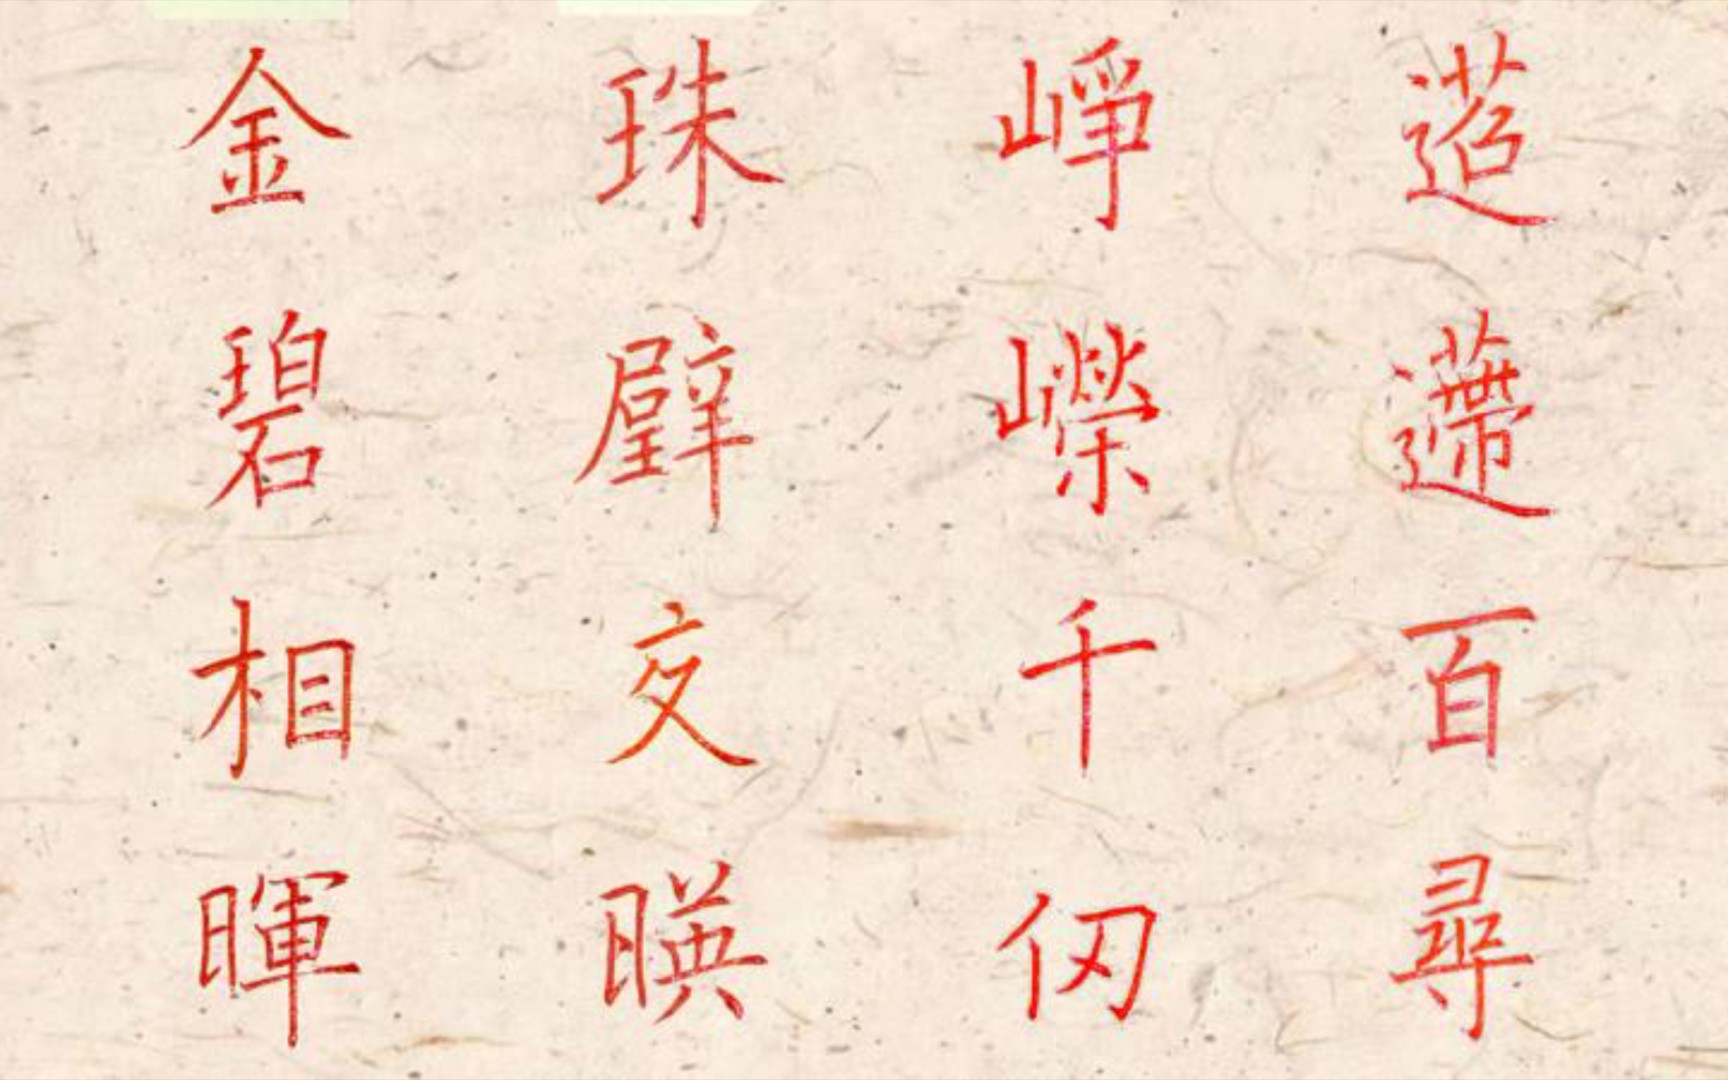 迢遰百尋
崢嶸千仞
珠璧交暎
金碧相暉